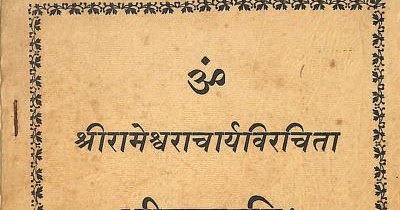 ॐ
श्रीरामेश्वराचार्यविरचिता